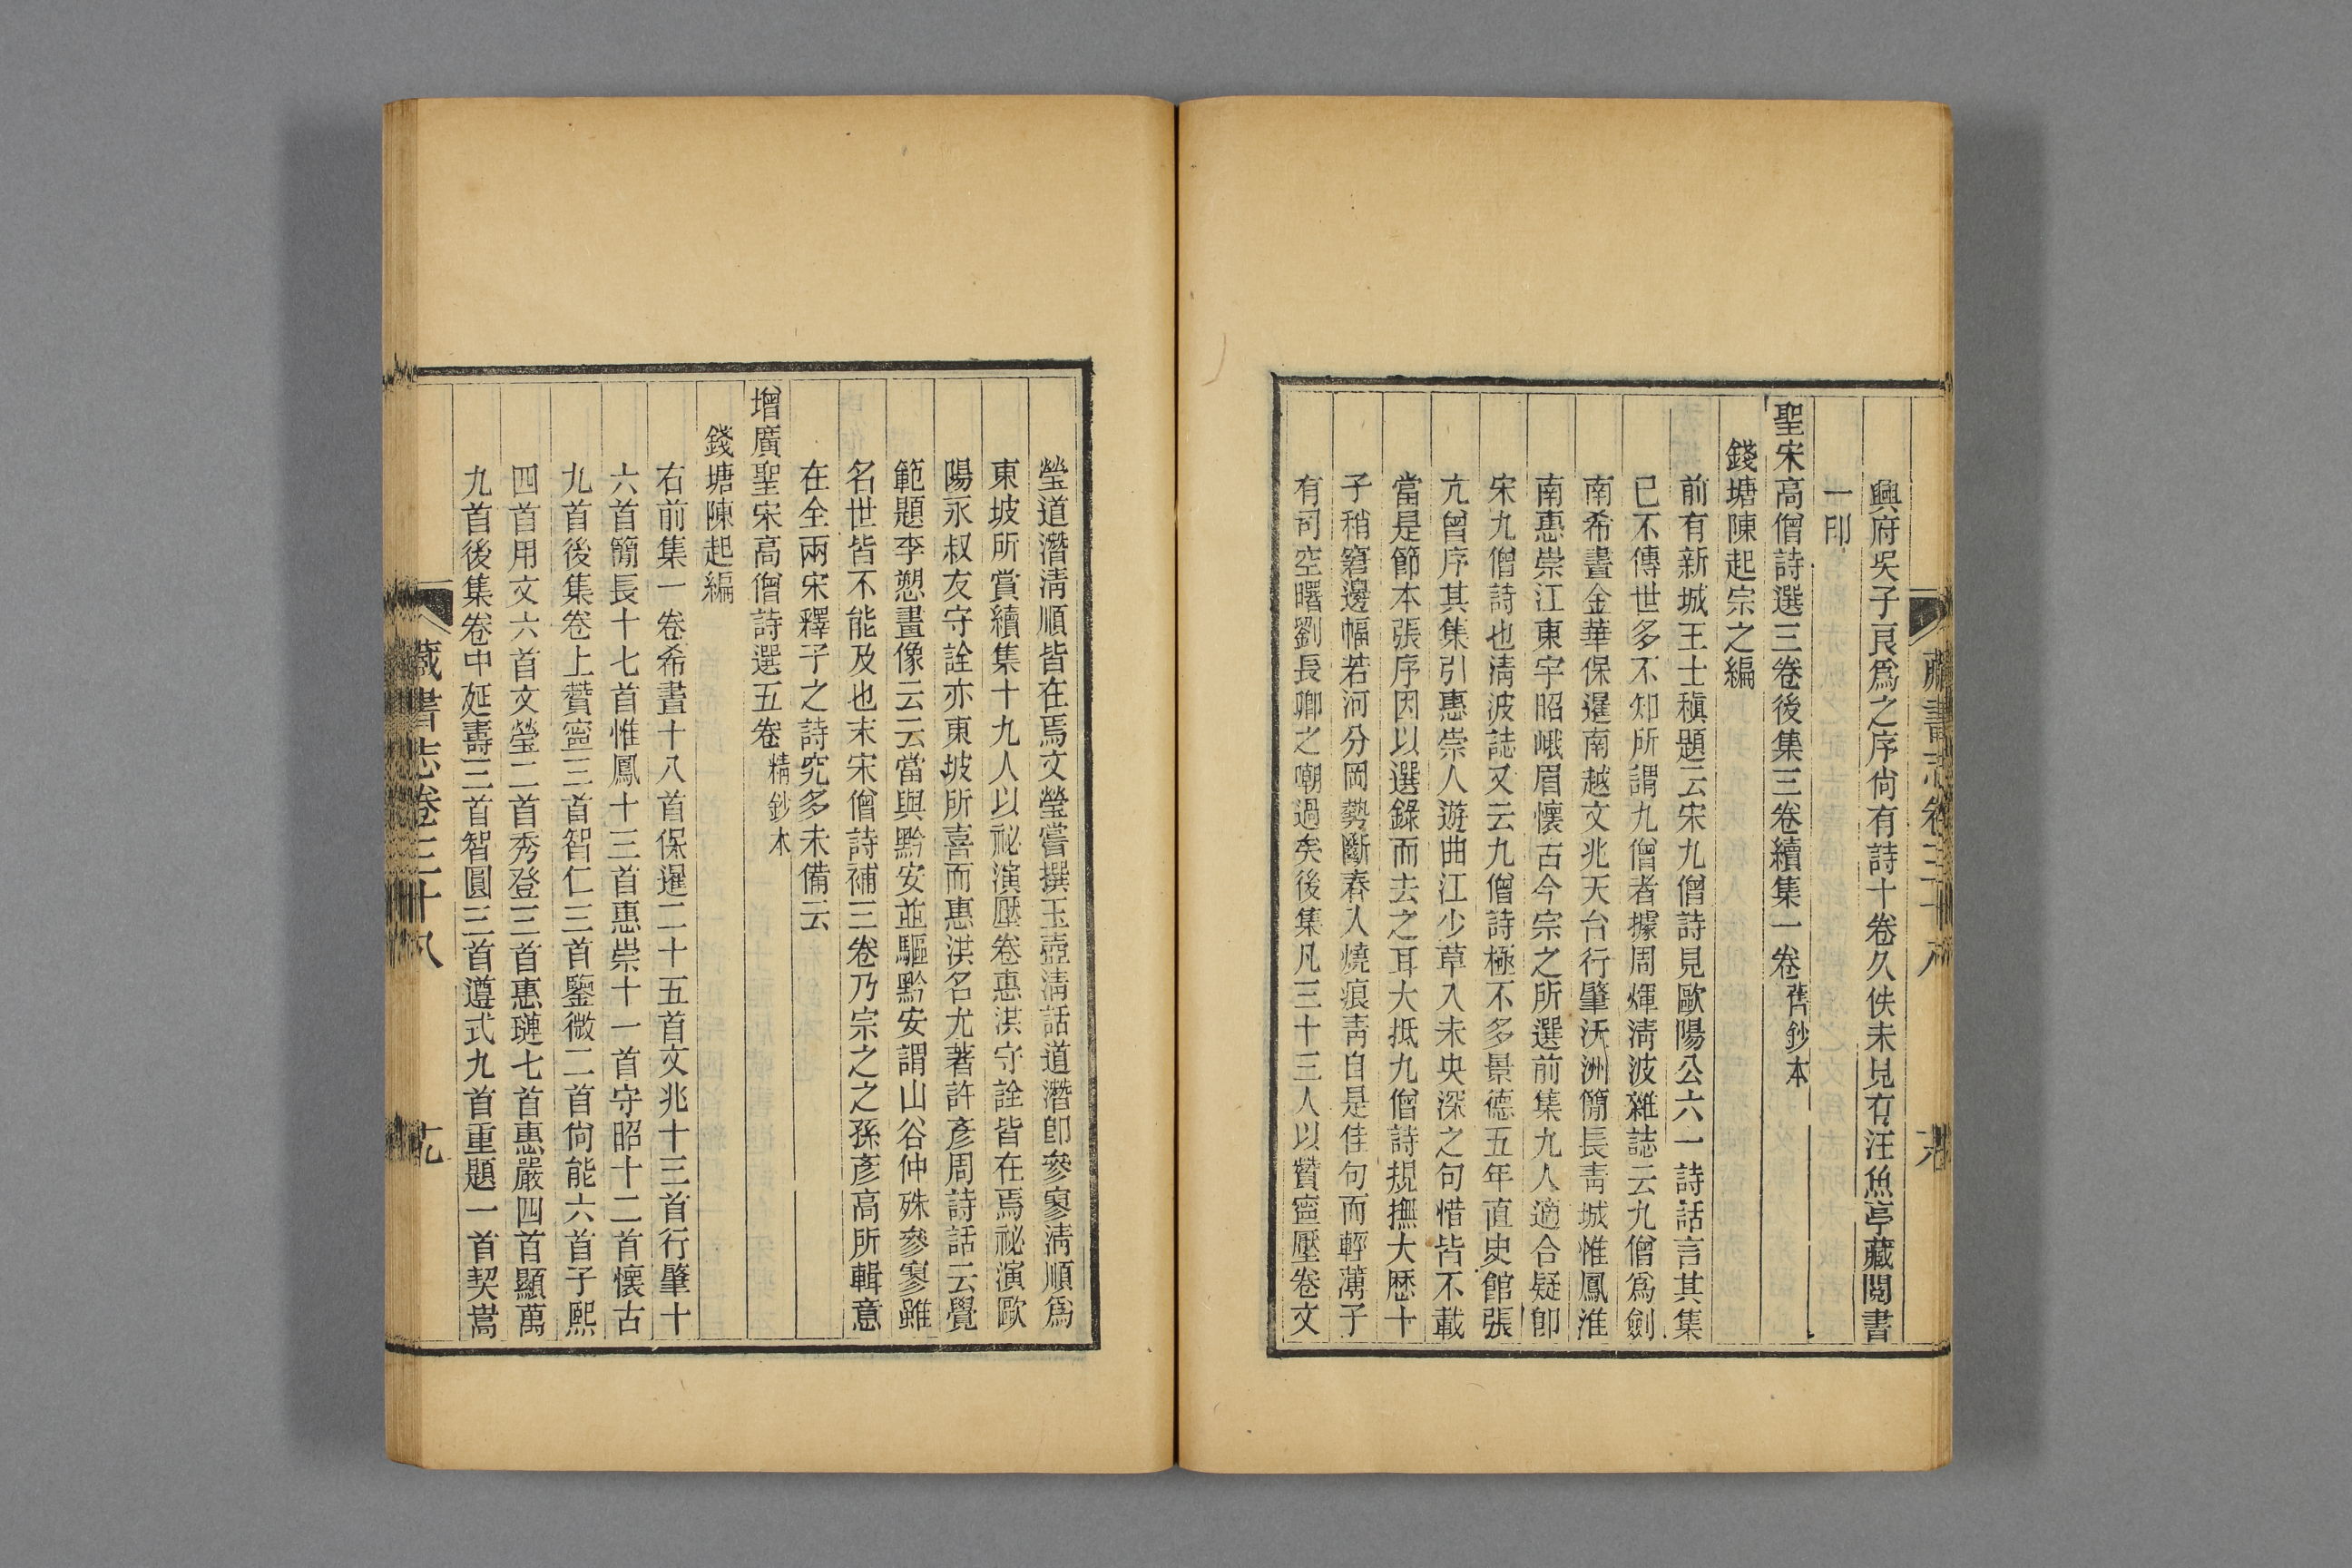 藏書志卷三十八
興府吳子良爲之序尙有詩十卷久佚未見有汪魚亭藏閱書
一印
聖宋高僧詩選三卷後集三卷續集一卷 舊鈔本
錢塘陳起宗之編
前有新城王士稹題云宋九僧詩見歐陽公六一詩話言其集
已不傳世多不知所謂九僧者據周煇淸波雜誌云九僧爲劍
南希晝金華保暹南越文兆天台行肇沃洲簡長靑城惟鳳淮
南惠崇江東宇昭峨眉懷古今宗之所選前集九人適合疑卽
宋九僧詩也淸波誌又云九僧詩極不多景德五年直史館張
亢曾序其集引惠崇人遊曲江少草入未央深之句惜皆不載
當是節本張序因以選錄而去之耳大抵九僧詩規撫大歷十
子稍窘邊幅若河分岡勢斷春入燒痕靑自是佳句而輕薄子
有司空曙劉長卿之嘲過矣後集凡三十三人以贊寧壓卷文
瑩道潛淸順皆在焉文瑩嘗撰玉壺淸話道潛卽參寥淸順爲
東坡所賞續集十九人以祕演壓卷惠洪守詮皆在焉祕演歐
陽永叔友守詮亦東坡所喜而惠洪名尤著許彥周詩話云覺
範題李愬畫像云云當與黔安並驅黔安謂山谷仲殊參寥雖
名世皆不能及也末宋僧詩補三卷乃宗之之孫彥高所輯意
在全兩宋釋子之詩究多未備云
增廣聖宋高僧詩選五卷 精鈔本
錢塘陳起編
右前集一卷希晝十八首保暹二十五首文兆十三首行肇十
六首簡長十七首惟鳳十三首惠崇十一首守昭十二首懷古
九首後集卷上贊寧三首智仁三首鑒微二首尙能六首子熙
四首用文六首文瑩二首秀登三首惠璉七首惠嚴四首顯萬
九首後集卷中延壽三首智圓三首遵式九首重題一首契嵩
藏書志卷三十八